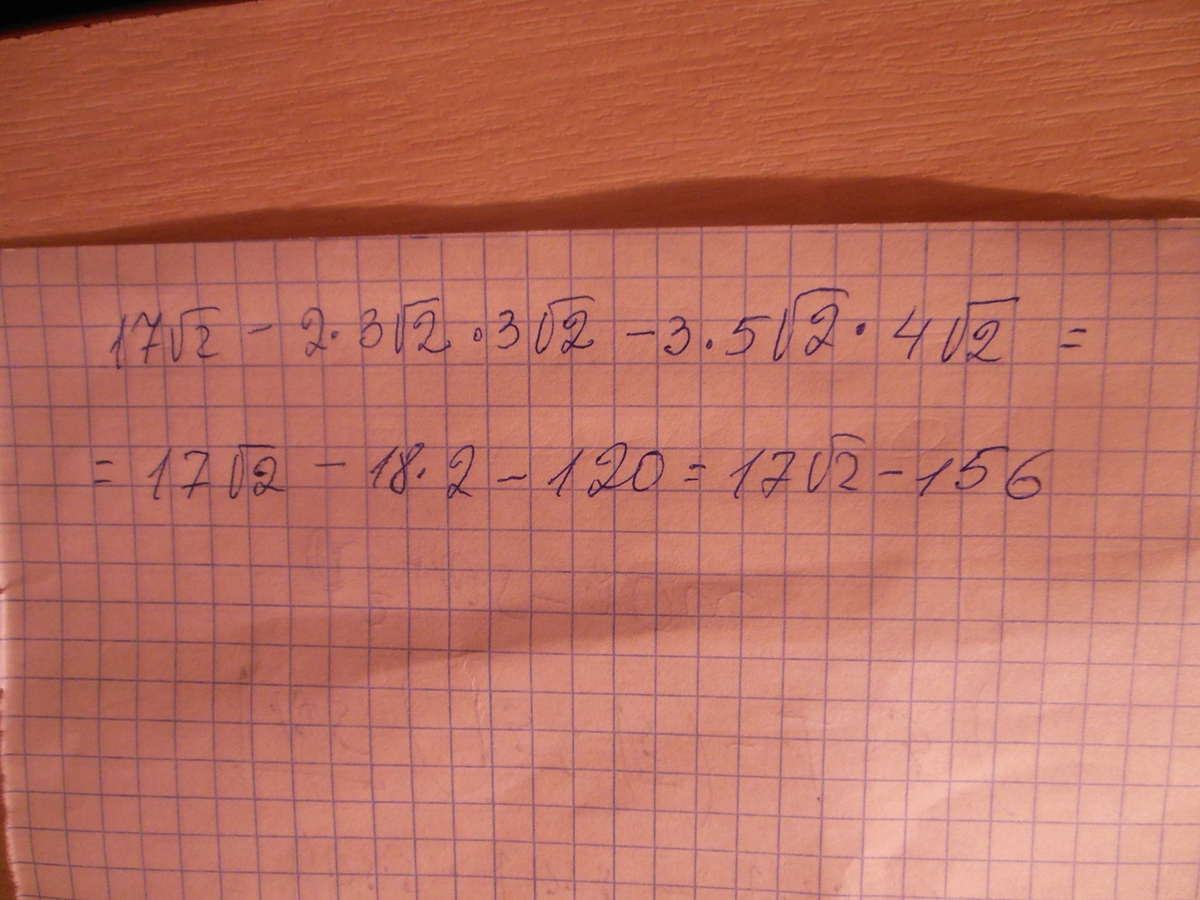 17√2 - 2·3√2·3√2 - 3·5√2·4√2 =
= 17√2 - 18·2 - 120 = 17√2 - 156